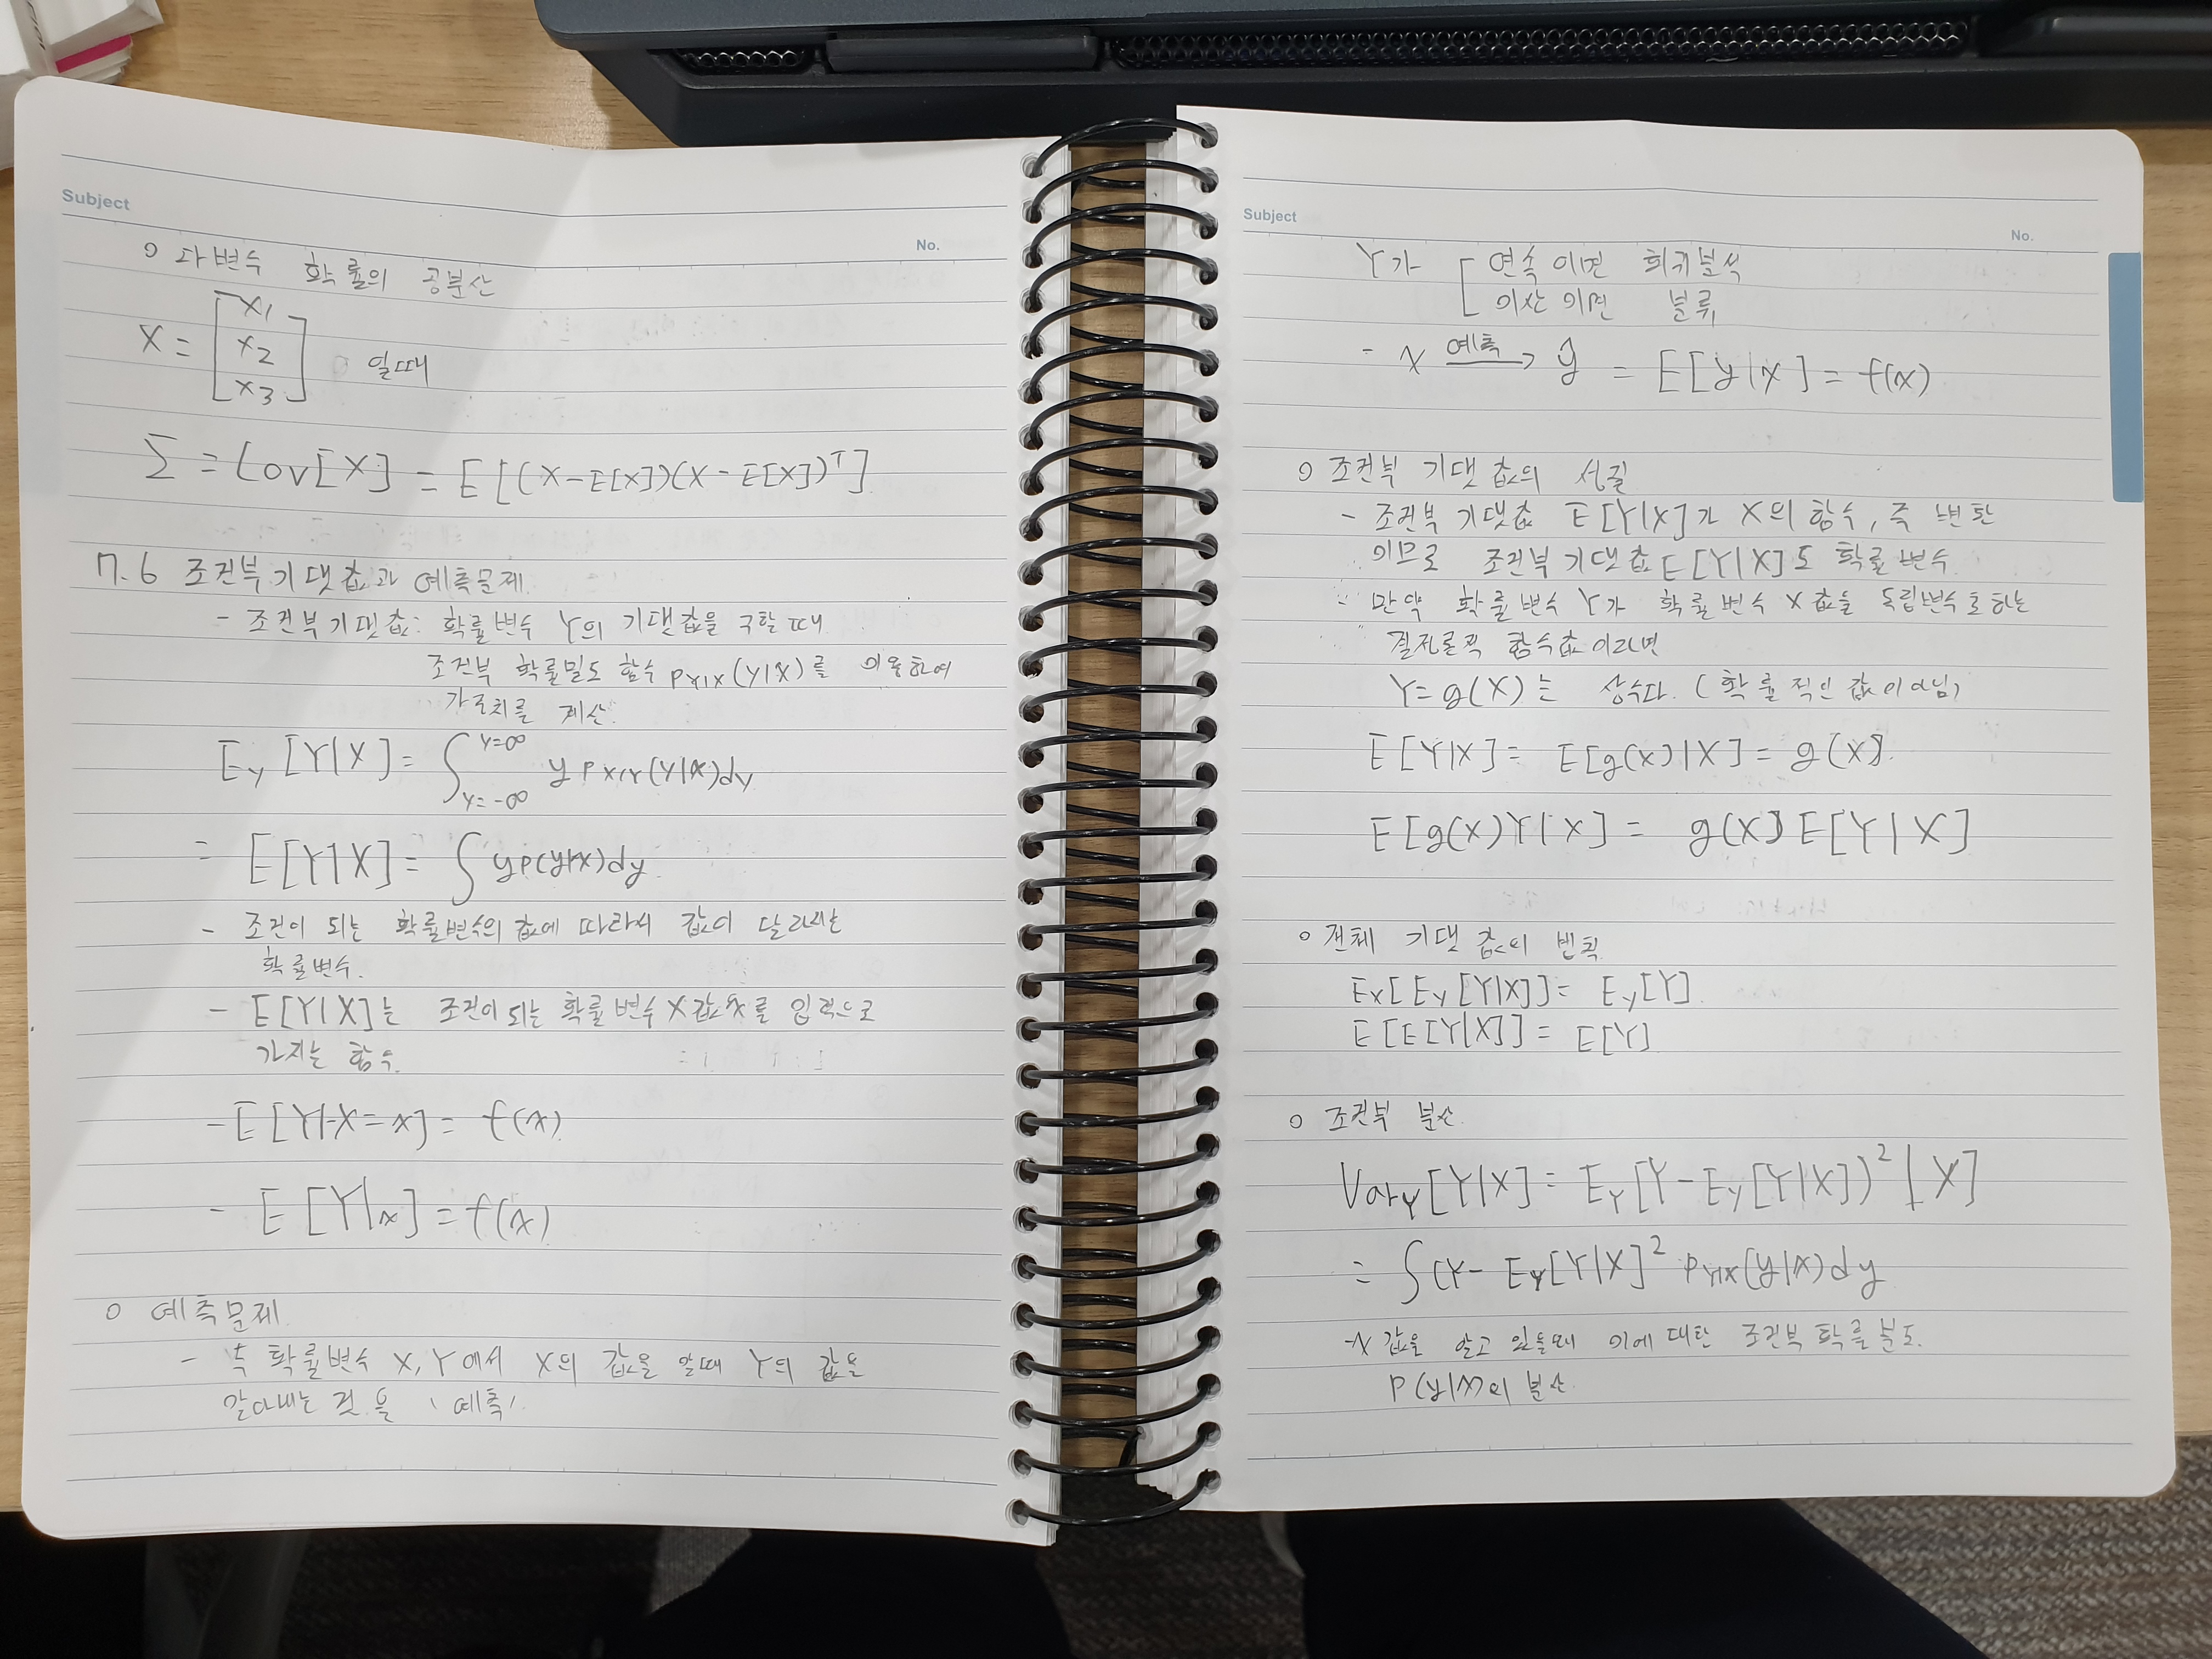 Subject
No.
○ 다변수 확률의 공분산
X = [x1 x2 x3] 일때
Σ = Cov[X] = E[(X-E[X])(X-E[X])ᵀ]
7.6 조건부기댓값과 예측문제
- 조건부기댓값: 확률변수 Y의 기댓값을 구할 때
조건부 확률밀도 함수 PY|X(Y|X)를 이용하여
가중치를 계산.
EY[Y|X] = ∫y=-∞ y=∞ y PX|Y(Y|X)dy
= E[Y|X] = ∫yp(y|x)dy
- 조건이 되는 확률변수의 값에 따라서 값이 달라지는
확률변수.
- E[Y|X]는 조건이 되는 확률변수 X값 x를 입력으로
가지는 함수.
- E[Y|X=x] = f(x)
- E[Y|x] = f(x)
○ 예측문제
- 두 확률변수 X, Y에서 X의 값을 알때 Y의 값을
알아내는 것을 '예측'.
Subject
No.
Y가 [ 연속이면 회귀분석
이산이면 분류
- x 예측→ ŷ = E[y|x] = f(x)
○ 조건부 기댓값의 성질
- 조건부 기댓값 E[Y|X]가 X의 함수, 즉 변환
이므로 조건부기댓값 E[Y|X]도 확률변수
- 만약 확률변수 Y가 확률변수 X값을 독립변수로하는
결정론적 함수값이라면
Y=g(X)는 상수다. (확률적인 값이아님)
E[Y|X] = E[g(x)|X] = g(X).
E[g(X)Y|X] = g(X)E[Y|X]
○ 전체 기댓값의 법칙
EX[EY[Y|X]] = EY[Y]
E[E[Y|X]] = E[Y]
○ 조건부 분산.
VarY[Y|X] = EY[Y-EY[Y|X])²|X]
= ∫(Y-EY[Y|X]² PY|X(y|x)dy
-x 값을 알고 있을때 이에 대한 조건부 확률분포.
P(y|x)의 분산.